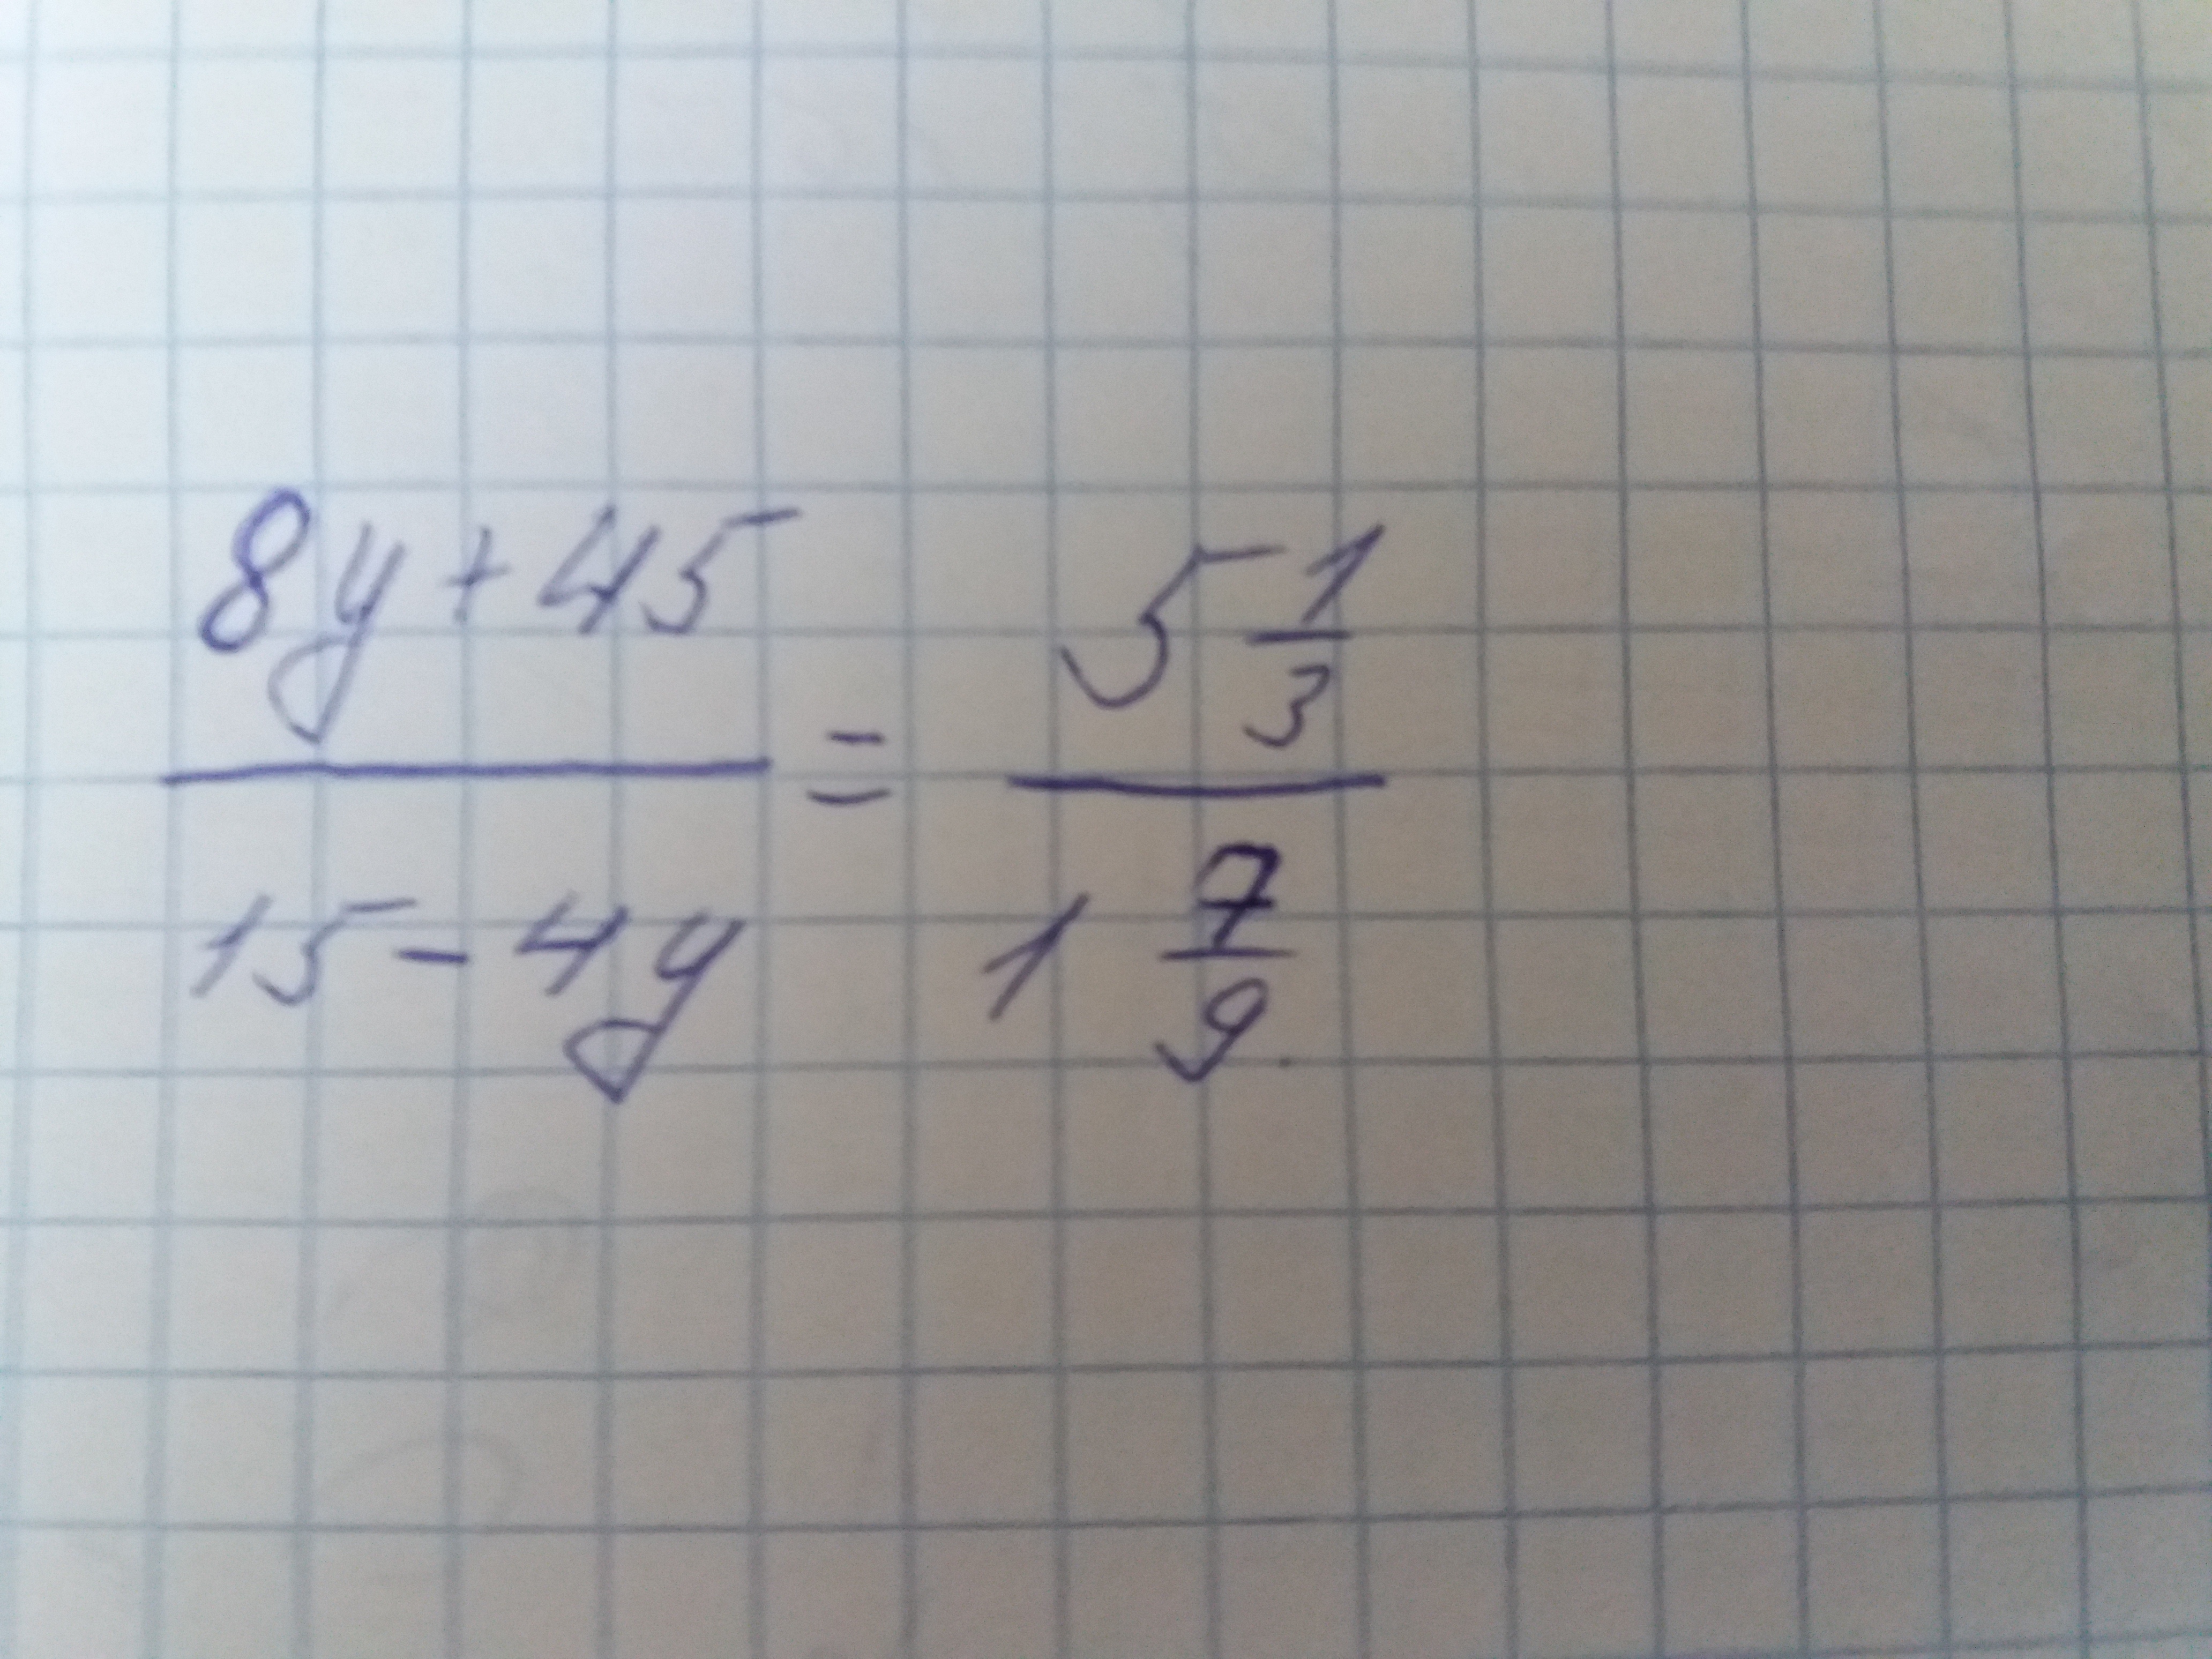 8y + 45 / 15 - 4y = 5 1/3 / 1 7/9